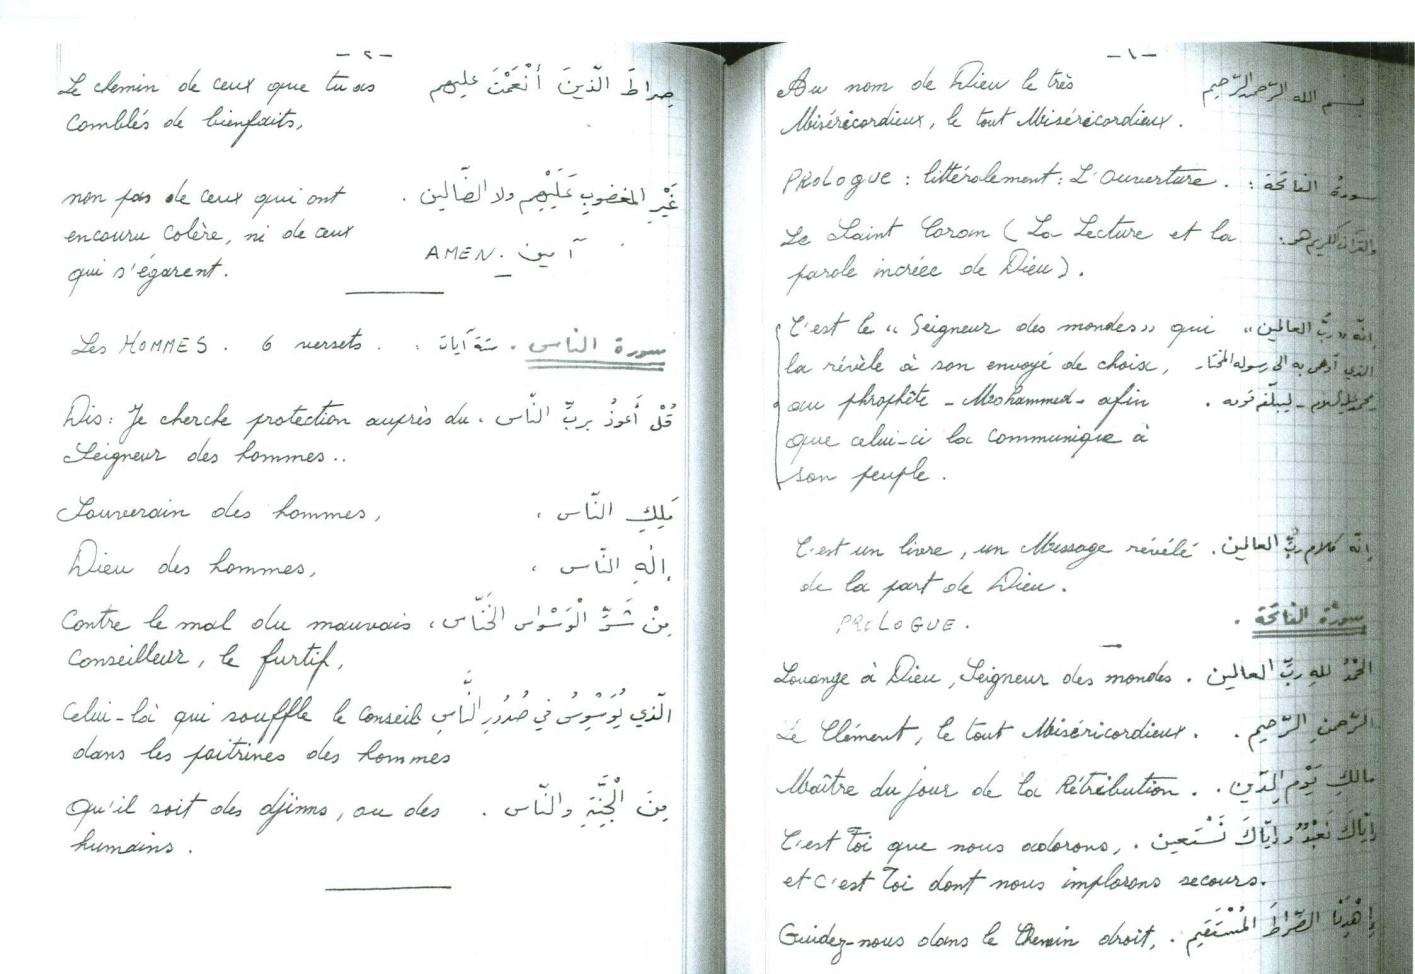 - ١ -
Au nom de Dieu le très بسم الله الرّحمن الرّحيم
Miséricordieux, le tout Miséricordieux.
PROLOGUE : littéralement : L'Ouverture. سورة الفاتحة :
Le Saint Coran (La Lecture et la والقرآن الكريم هو :
parole incréée de Dieu).
C'est le « Seigneur des mondes » qui إنّه « ربُّ العالمين »
la révèle à son envoyé de choix, الذي أوحى به الى رسوله المختار
au phrophète - Mohammed - afin محمد عليه السلام - ليبلّغه قومه .
que celui-ci la communique à
son peuple.
C'est un livre, un Message révélé إنّه كلام ربُّ العالمين .
de la part de Dieu.
PROLOGUE. سورة الفاتحة .
Louange à Dieu, Seigneur des mondes. الحَمْدُ للهِ ربِّ العالمين .
Le Clément, le tout Miséricordieux. الرّحمنِ الرّحيم .
Maître du jour de la Rétribution. مالكِ يَوْمِ الدّين .
C'est Toi que nous adorons, إيّاكَ نَعْبُدُ وإيّاكَ نَسْتَعين .
et c'est Toi dont nous implorons secours.
Guidez-nous dans le Chemin droit, إهْدِنَا الصِّراطَ المُسْتَقيم .
- ٢ -
Le chemin de ceux que tu as صِراطَ الّذينَ أنْعَمْتَ عليهم
Comblés de bienfaits,
non pas de ceux qui ont غَيْرِ المغضوبِ عَلَيْهِم ولا الضّالين .
encouru Colère, ni de ceux
qui s'égarent. AMEN. آمين
Les HOMMES. 6 versets. سورة الناس . ستة آيات :
Dis : Je cherche protection auprès du قُلْ أَعوذُ بربِّ النّاس .
Seigneur des hommes..
Souverain des hommes, مَلِكِ النّاس ،
Dieu des hommes, إلٰهِ النّاس ،
Contre le mal du mauvais مِنْ شَرِّ الْوَسْوَاسِ الخَنّاس ،
Conseilleur, le furtif,
Celui-là qui souffle le Conseil الّذي يُوَسْوِسُ في صُدُورِ النَّاسِ
dans les poitrines des hommes
Qu'il soit des djinns, ou des مِنَ الْجِنَّةِ والنّاس .
humains.